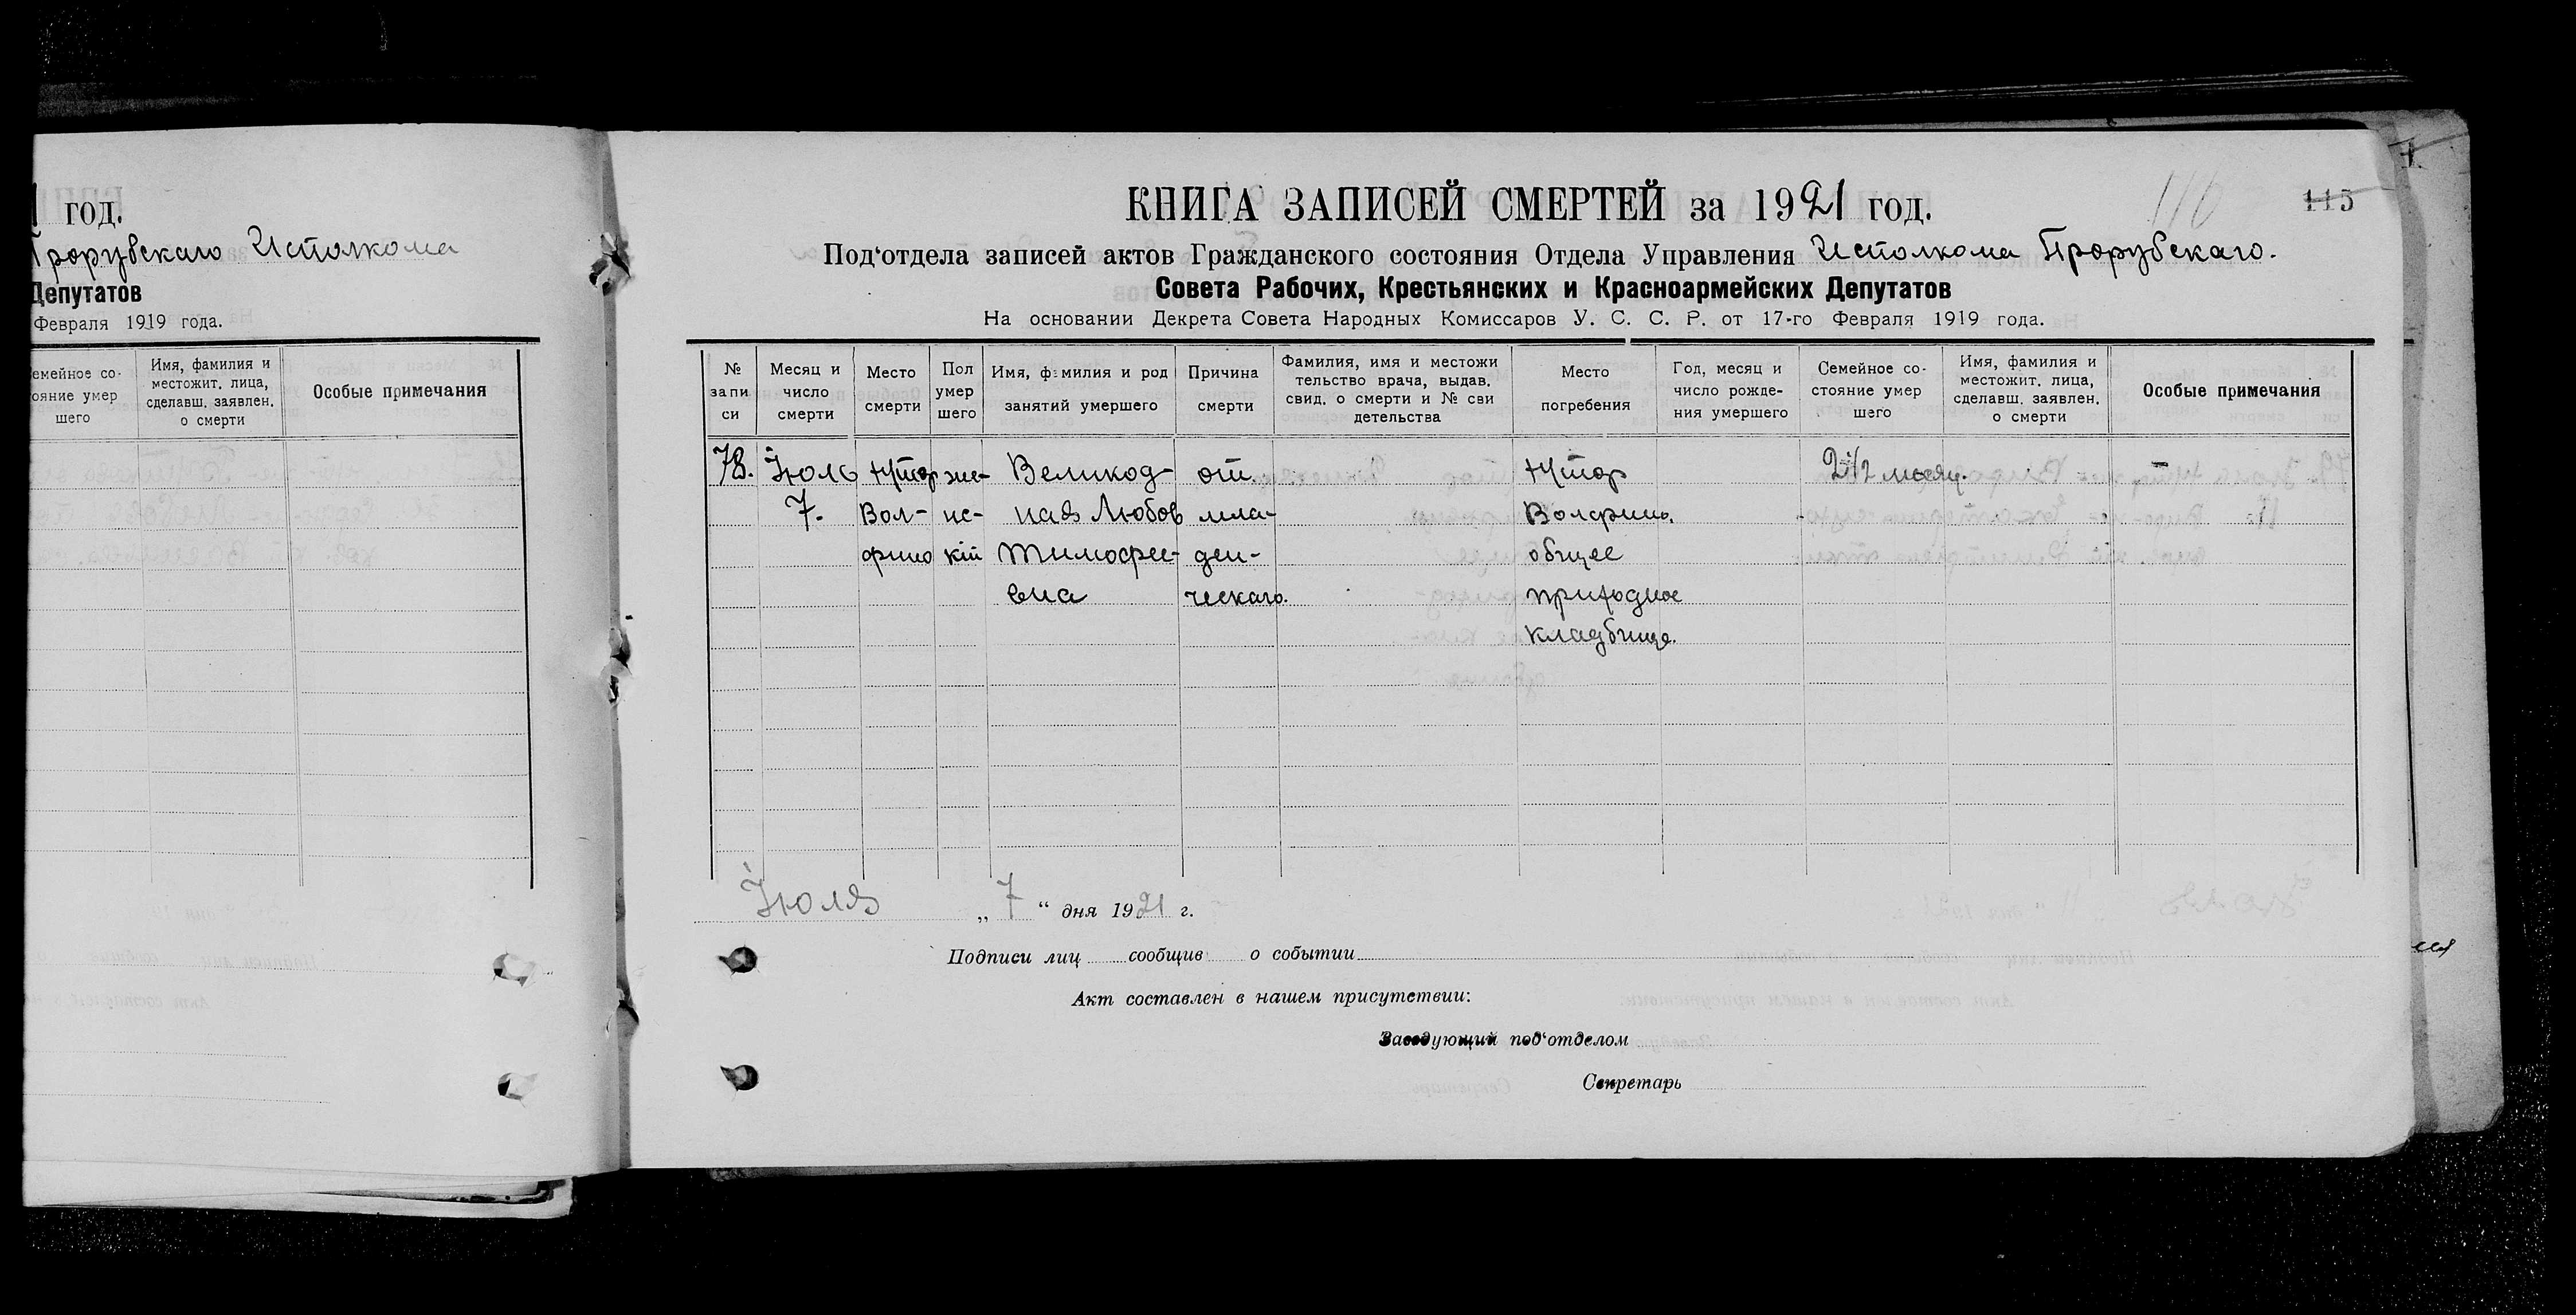 1 год.
Прорубскаго Исполкома
Депутатов
Февраля 1919 года.
емейное со-
ояние умер
шего
Имя, фамилия и
местожит. лица,
сделавш. заявлен.
о смерти
Особые примечания
116
115
КНИГА ЗАПИСЕЙ СМЕРТЕЙ за 1921 год.
Под‘отдела записей актов Гражданского состояния Отдела Управления Исполкома Прорубскаго.
Совета Рабочих, Крестьянских и Красноармейских Депутатов
На основании Декрета Совета Народных Комиссаров У. С. С. Р. от 17-го Февраля 1919 года.
№
запи
си
Месяц и
число
смерти
Место
смерти
Пол
умер
шего
Имя, фамилия и род
занятий умершего
Причина
смерти
Фамилия, имя и местожи
тельство врача, выдав.
свид. о смерти и № сви
детельства
Место
погребения
Год, месяц и
число рожде-
ния умершего
Семейное со-
стояние умер
шего
Имя, фамилия и
местожит. лица,
сделавш. заявлен.
о смерти
Особые примечания
78.
Іюль
7.
Хутор
Вол-
фино
же-
нс-
кій
Великод-
ная Любов
Тимофе-
евна
от
мла-
ден-
ческаго.
Хутор
Волфино.
общее
приходное
кладбище.
2 1/2 месяц.
Іюля „ 7 “ дня 1921 г.
Подписи лиц сообщив о событии
Акт составлен в нашем присутствии:
Заведующий под‘отделом
Секретарь